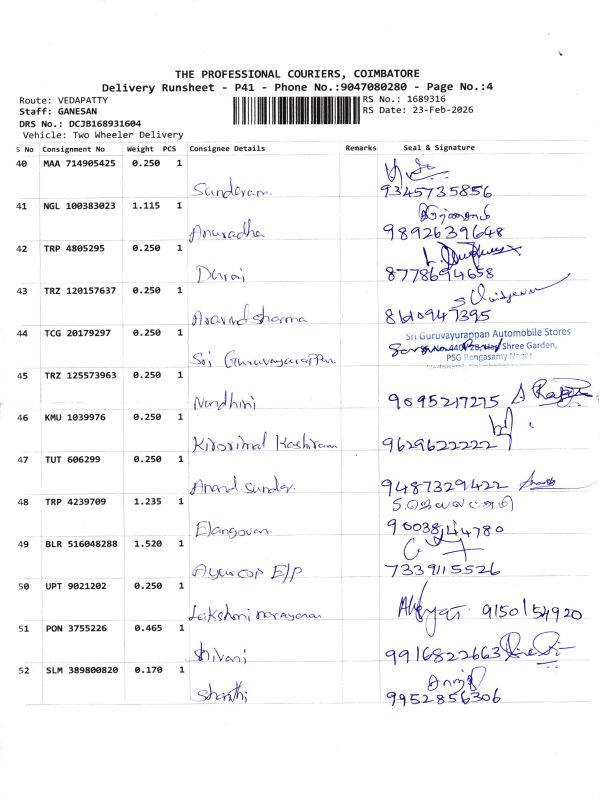 THE PROFESSIONAL COURIERS, COIMBATORE
Delivery Runsheet - P41 - Phone No.:9047080280 - Page No.:4
Route: VEDAPATTY
RS No.: 1689316
Staff: GANESAN
RS Date: 23-Feb-2026
DRS No.: DCJB168931604
Vehicle: Two Wheeler Delivery
S No Consignment No Weight PCS Consignee Details Remarks Seal & Signature
40 MAA 714905425 0.250 1
Sunderam 9345735856
41 NGL 100383023 1.115 1
Anuradha 9892639648
42 TRP 4805295 0.250 1
Durai 8778694658
43 TRZ 120157637 0.250 1
Aravind sharma 8610947395
44 TCG 20179297 0.250 1
Sri Guruvayurappan Automobile Stores
Shree Garden,
Sri Guruvayurappan
PSG Rangasamy Nagar
45 TRZ 125573963 0.250 1
Nandhini 9095217275
46 KMU 1039976 0.250 1
Kirorimal Kashiram 9629622222
47 TUT 606299 0.250 1
Anand sunder 9487329422
48 TRP 4239709 1.235 1
Elangovan 9003844780
49 BLR 516048288 1.520 1
Ayurcop E/P 7339115526
50 UPT 9021202 0.250 1
Lakshmi narayanan 9150154920
51 PON 3755226 0.465 1
Shivani 9916822663
52 SLM 389800820 0.170 1
Shanthi 9952856306